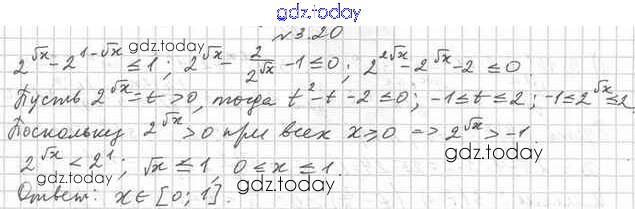 gdz.today
№3.20
2^√x - 2^(1-√x) ≤ 1; 2^√x - 2/2^√x - 1 ≤ 0; 2^(2√x) - 2^√x - 2 ≤ 0.
gdz.today
Пусть 2^√x = t > 0, тогда t² - t - 2 ≤ 0; -1 ≤ t ≤ 2; -1 ≤ 2^√x ≤ 2.
Поскольку 2^√x > 0 при всех x ≥ 0 => 2^√x > -1.
gdz.today
2^√x < 2^1; √x ≤ 1, 0 ≤ x ≤ 1.
gdz.today gdz.today
Ответ: x ∈ [0; 1].
gdz.today